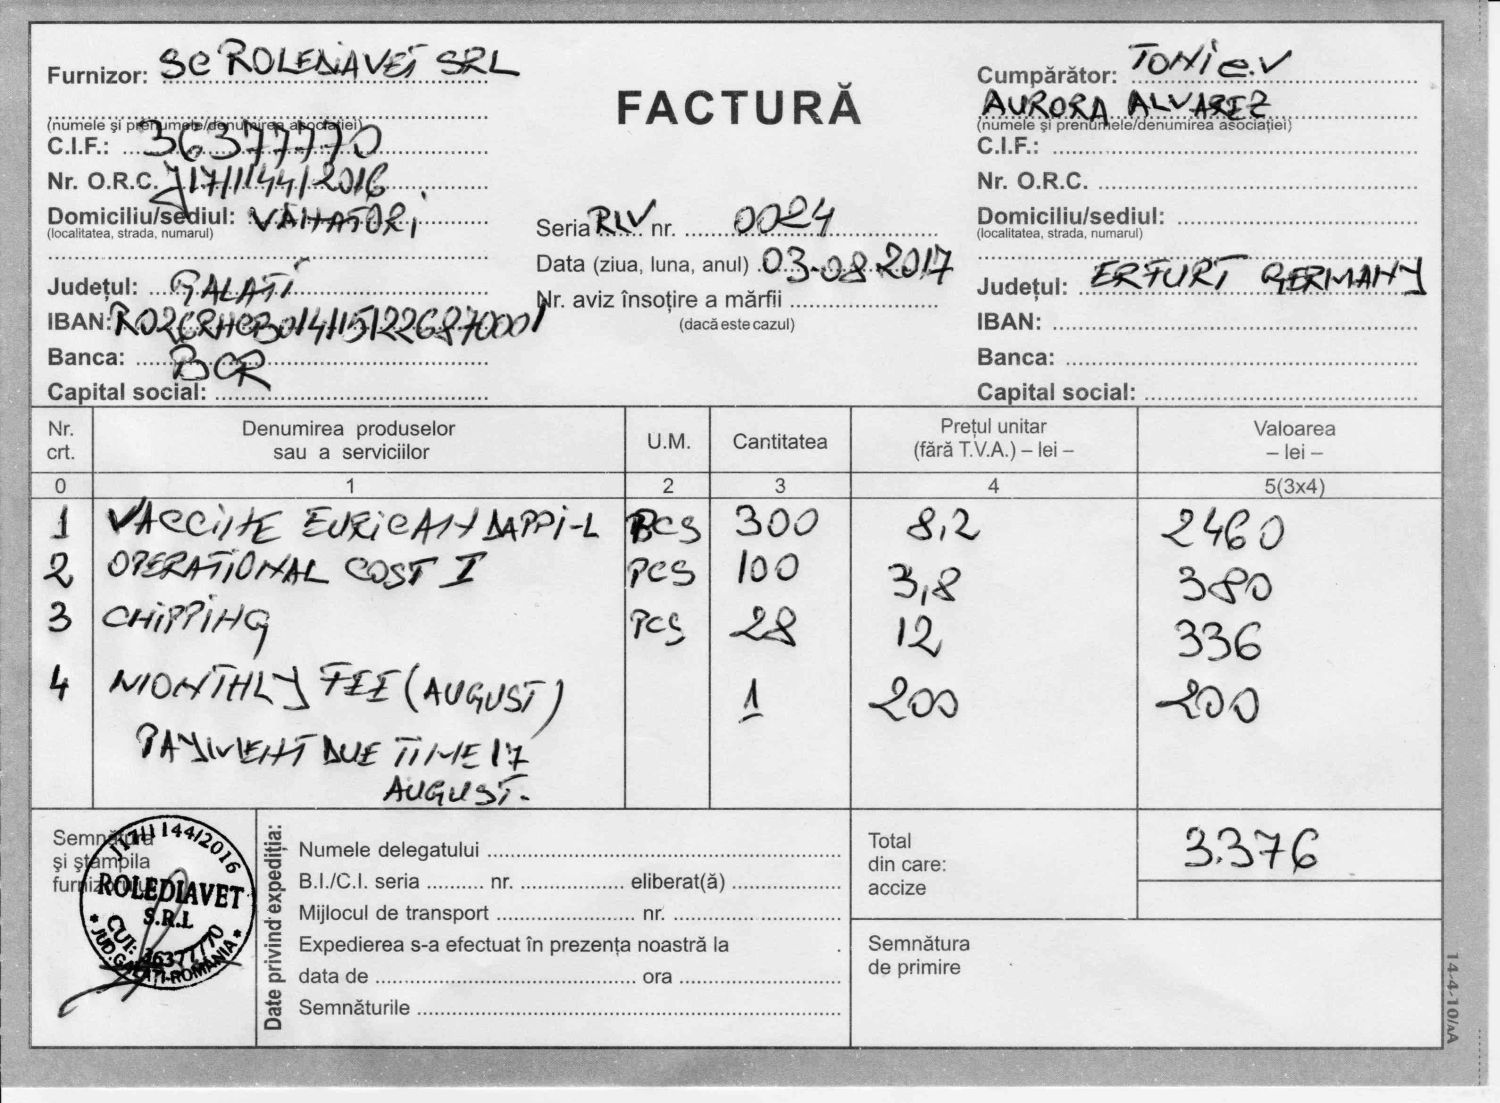 Furnizor: SC ROLEDIAVET SRL
(numele și prenumele/denumirea asociației)
C.I.F.: 36377770
Nr. O.R.C. J17/1144/2016
Domiciliu/sediul:
(localitatea, strada, numarul)
Județul: GALATI
IBAN:
Banca: BCR
Capital social:
FACTURĂ
Seria RLV nr. 0024
Data (ziua, luna, anul) 03.08.2017
Nr. aviz însoțire a mărfii
(dacă este cazul)
Cumpărător: TONI e.V
AURORA ALVAREZ
(numele și prenumele/denumirea asociației)
C.I.F.:
Nr. O.R.C.
Domiciliu/sediul:
(localitatea, strada, numarul)
Județul: ERFURT GERMANY
IBAN:
Banca:
Capital social:
Nr. crt. Denumirea produselor sau a serviciilor U.M. Cantitatea Prețul unitar (fără T.V.A.) – lei – Valoarea – lei –
0 1 2 3 4 5(3x4)
1 VACCINE EURICAN DAPPI-L PCS 300 8,2 2460
2 OPERATIONAL COST I PCS 100 3,8 380
3 CHIPPING PCS 28 12 336
4 MONTHLY FEE (AUGUST) 1 200 200
PAYMENT DUE TIME 17
AUGUST.
Semnătura
și ștampila
furnizorului
J17/1144/2016
ROLEDIAVET
S.R.L
CUI: 36377770
* JUD. GALAȚI-ROMÂNIA *
Date privind expediția:
Numele delegatului
B.I./C.I. seria nr. eliberat(ă)
Mijlocul de transport nr.
Expedierea s-a efectuat în prezența noastră la
data de ora
Semnăturile
Total
din care:
accize
3.376
Semnătura
de primire
14-4-10/AA